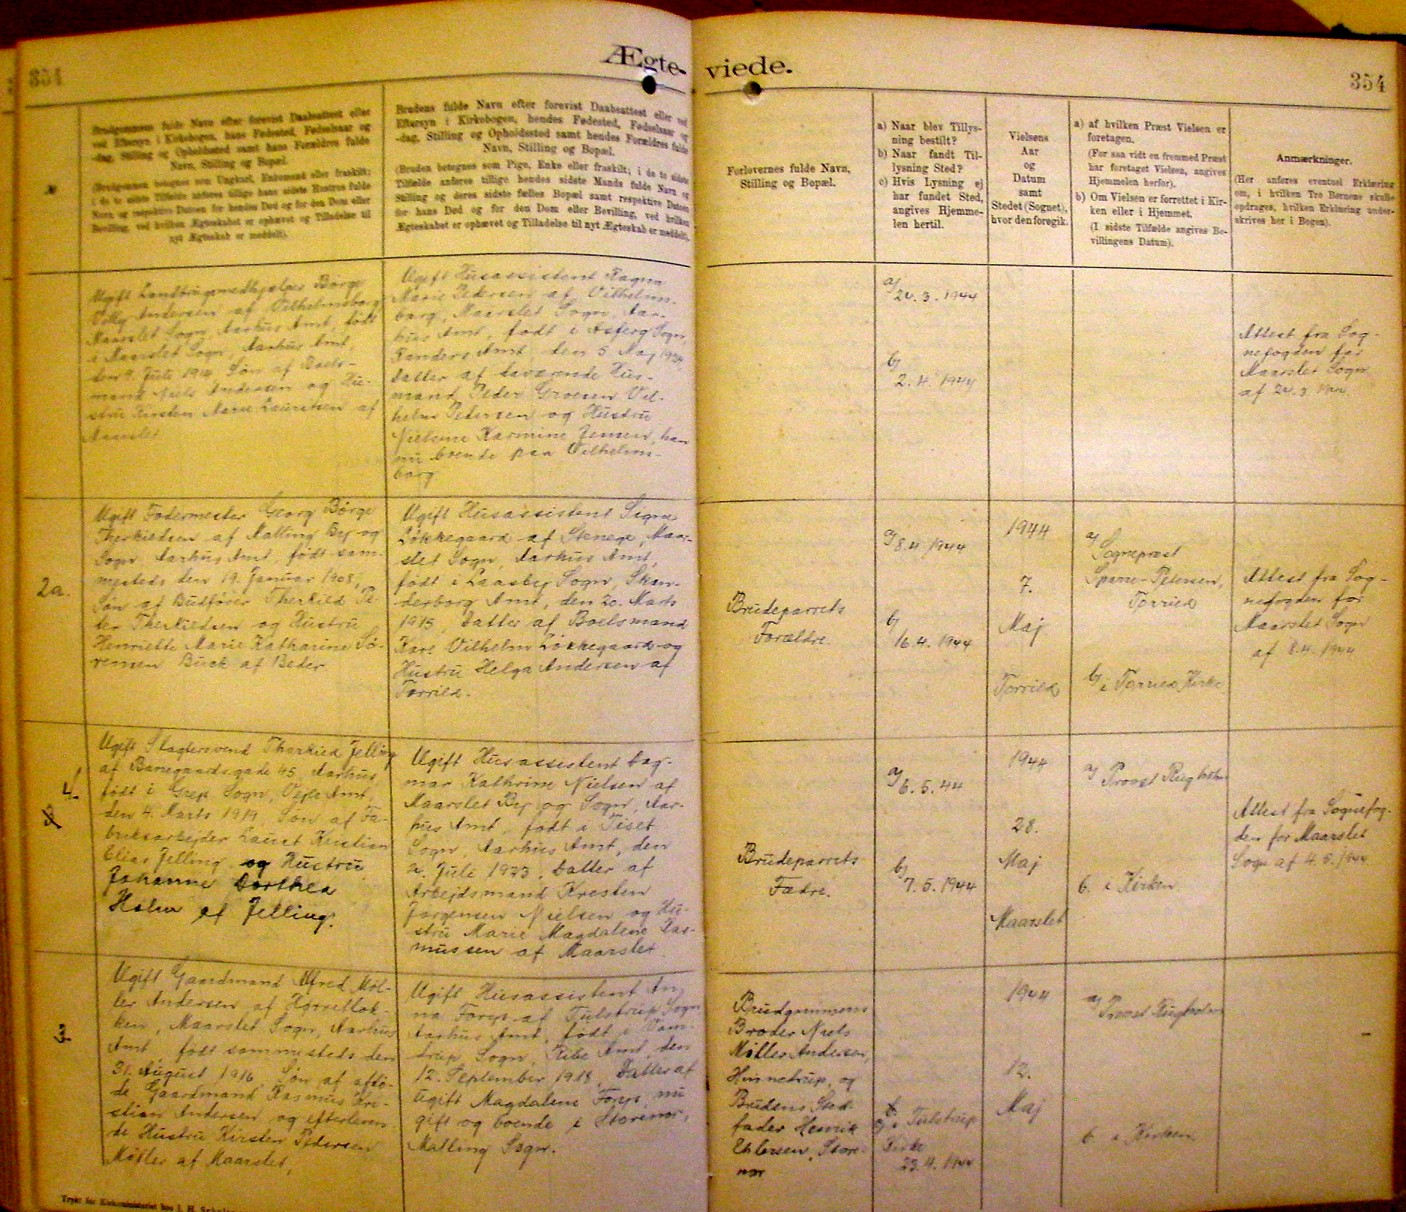 354
Ægte-
viede.
354
Brudgommens fulde Navn efter forevist Daabsattest eller
ved Eftersyn i Kirkebogen, hans Fødested, Fødselsaar og
-dag, Stilling og Opholdssted samt hans Forældres fulde
Navn, Stilling og Bopæl.
(Brudgommen betegnes som Ungkarl, Enkemand eller fraskilt;
i de to sidste Tilfælde anføres tillige hans sidste Hustrus fulde
Navn og respektive Datoen for hendes Død og for den Dom eller
Bevilling, ved hvilken Ægteskabet er ophævet og Tilladelse til
nyt Ægteskab er meddelt).
Brudens fulde Navn efter forevist Daabsattest eller ved
Eftersyn i Kirkebogen, hendes Fødested, Fødselsaar og
-dag, Stilling og Opholdssted samt hendes Forældres fulde
Navn, Stilling og Bopæl.
(Bruden betegnes som Pige, Enke eller fraskilt; i de to sidste
Tilfælde anføres tillige hendes sidste Mands fulde Navn og
Stilling og deres sidste fælles Bopæl samt respektive Datoen
for hans Død og for den Dom eller Bevilling, ved hvilken
Ægteskabet er ophævet og Tilladelse til nyt Ægteskab er meddelt).
Forlovernes fulde Navn,
Stilling og Bopæl.
a) Naar blev Tillys-
ning bestilt?
b) Naar fandt Til-
lysning Sted?
c) Hvis Lysning ej
har fundet Sted,
angives Hjemme-
len hertil.
Vielsens
Aar
og
Datum
samt
Stedet (Sognet),
hvor den foregik.
a) af hvilken Præst Vielsen er
foretagen.
(For saa vidt en fremmed Præst
har foretaget Vielsen, angives
Hjemmelen herfor).
b) Om Vielsen er forrettet i Kir-
ken eller i Hjemmet.
(I sidste Tilfælde angives Be-
villingens Datum).
Anmærkninger.
(Her anføres eventuel Erklæring
om, i hvilken Tro Børnene skulle
opdrages, hvilken Erklæring under-
skrives her i Bogen).
Ugift Landbrugsmedhjælper Børge
Villy Andersen af Vilhelmsborg
Maarslet Sogn, Aarhus Amt, født
i Maarslet Sogn, Aarhus Amt,
den 9. Juli 1914 Søn af Boels-
mand Niels Andersen og Hu-
stru Kirsten Marie Lauritsen af
Maarslet
Ugift Husassistent Ragna
Marie Pedersen af Vilhelms-
borg, Maarslet Sogn, Aar-
hus Amt, født i Asferg Sogn,
Randers Amt, den 5 Maj 1924,
Datter af daværende Hus-
mand Peder Groesen Vil-
helm Pedersen og Hustru
Nielsine Karmine Jensen, han
nu boende paa Vilhelms-
borg
a/
24. 3. 1944
b/
2. 4. 1944
Attest fra Sog-
nefogden for
Maarslet Sogn
af 24.3. 1944
2a.
Ugift Fodermester Georg Børge
Therkildsen af Malling By og
Sogn Aarhus Amt, født sam-
mesteds den 19. Januar 1908,
Søn af Budfører Therkild Pe-
ter Therkildsen og Hustru
Henriette Marie Katharine Sø-
rensen Buck af Beder
Ugift Husassistent Signe
Løkkegaard af Stenege, Maar-
slet Sogn, Aarhus Amt,
født i Laasby Sogn, Skan-
derborg Amt, den 20. Marts
1915, Datter af Boelsmand
Kare Vilhelm Løkkegaard og
Hustru Helga Andersen af
Torrild.
Brudeparrets
Forældre.
a/ 8.4. 1944
b/
16.4. 1944
1944
7.
Maj
Torrild
a/
Sognepræst
Sparre-Petersen,
Torrild
b/ i Torrild Kirke
Attest fra Sog-
nefogden for
Maarslet Sogn
af 8.4. 1944
4.
Ugift Slagtersvend Therkild Jelling
af Banegaardsgade 45, Aarhus,
født i Grejs Sogn, Vejle Amt,
den 4. Marts 1919, Søn af Fa-
briksarbejder Laust Kristian
Elias Jelling og Hustru
Johanne Dorthea
Holm af Jelling.
Ugift Husassistent Dag-
mar Kathrine Nielsen af
Maarslet By og Sogn, Aar-
hus Amt, født i Tiset
Sogn, Aarhus Amt, den
2. Juli 1923. Datter af
Arbejdsmand Kresten
Jørgensen Nielsen og Hu-
stru Marie Magdalene Ras-
mussen af Maarslet.
Brudeparrets
Fædre.
a/ 6. 5. 44
b/
7. 5. 1944
1944
28.
Maj
Maarslet
a/ Provst Rugholm
b. i Kirken
Attest fra Sognefog-
den for Maarslet
Sogn af 4. 5. 1944
3.
Ugift Gaardmand Alfred Møl-
ler Andersen af Hørretløk-
ken, Maarslet Sogn, Aarhus
Amt, født sammesteds den
31. August 1916 Søn af afdø-
de Gaardmand Rasmus Kri-
stian Andersen og efterleven-
de Hustru Kirsten Pedersen
Møller af Maarslet,
Ugift Husassistent An-
na Forup af Tulstrup Sogn
Aarhus Amt, født i Vam-
drup Sogn, Ribe Amt, den
12. September 1918, Datter af
Ugift Magdalene Forup nu
gift og boende i Starenor,
Malling Sogn.
Brudgommens
Broder Niels
Møller Andersen,
Hvinnetrup, og
Brudens Sted-
fader Henrik
Ehlersen, Stare-
nor
i Tulstrup
Kirke
23.4. 1944
1944
12.
Maj
a/ Provst Rugholm
b. i Kirken
Trykt for Kirkeministeriet hos J. H. Schultz